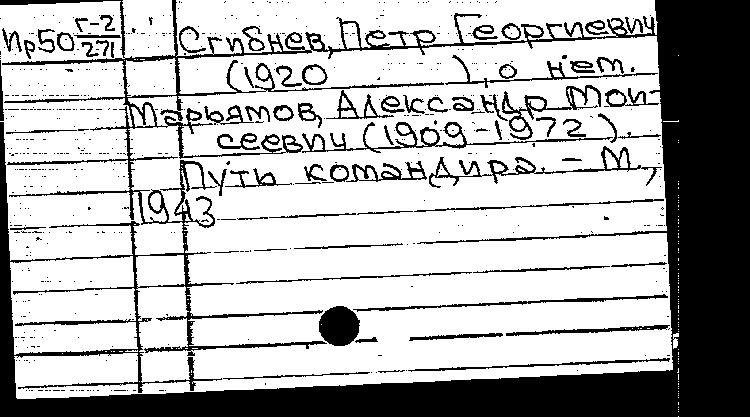 Пр50 Г-2/271
Сгибнев, Петр Георгиевич
(1920 ), о нем.
Марьямов, Александр Мои-
сеевич (1909-1972).
Путь командира. - М.,
1943